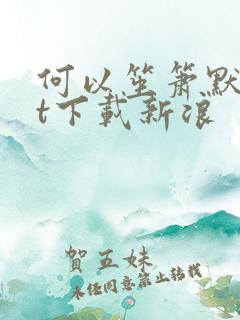 何以笙箫默
t下载新浪
賀五妹
未经同意禁止转载